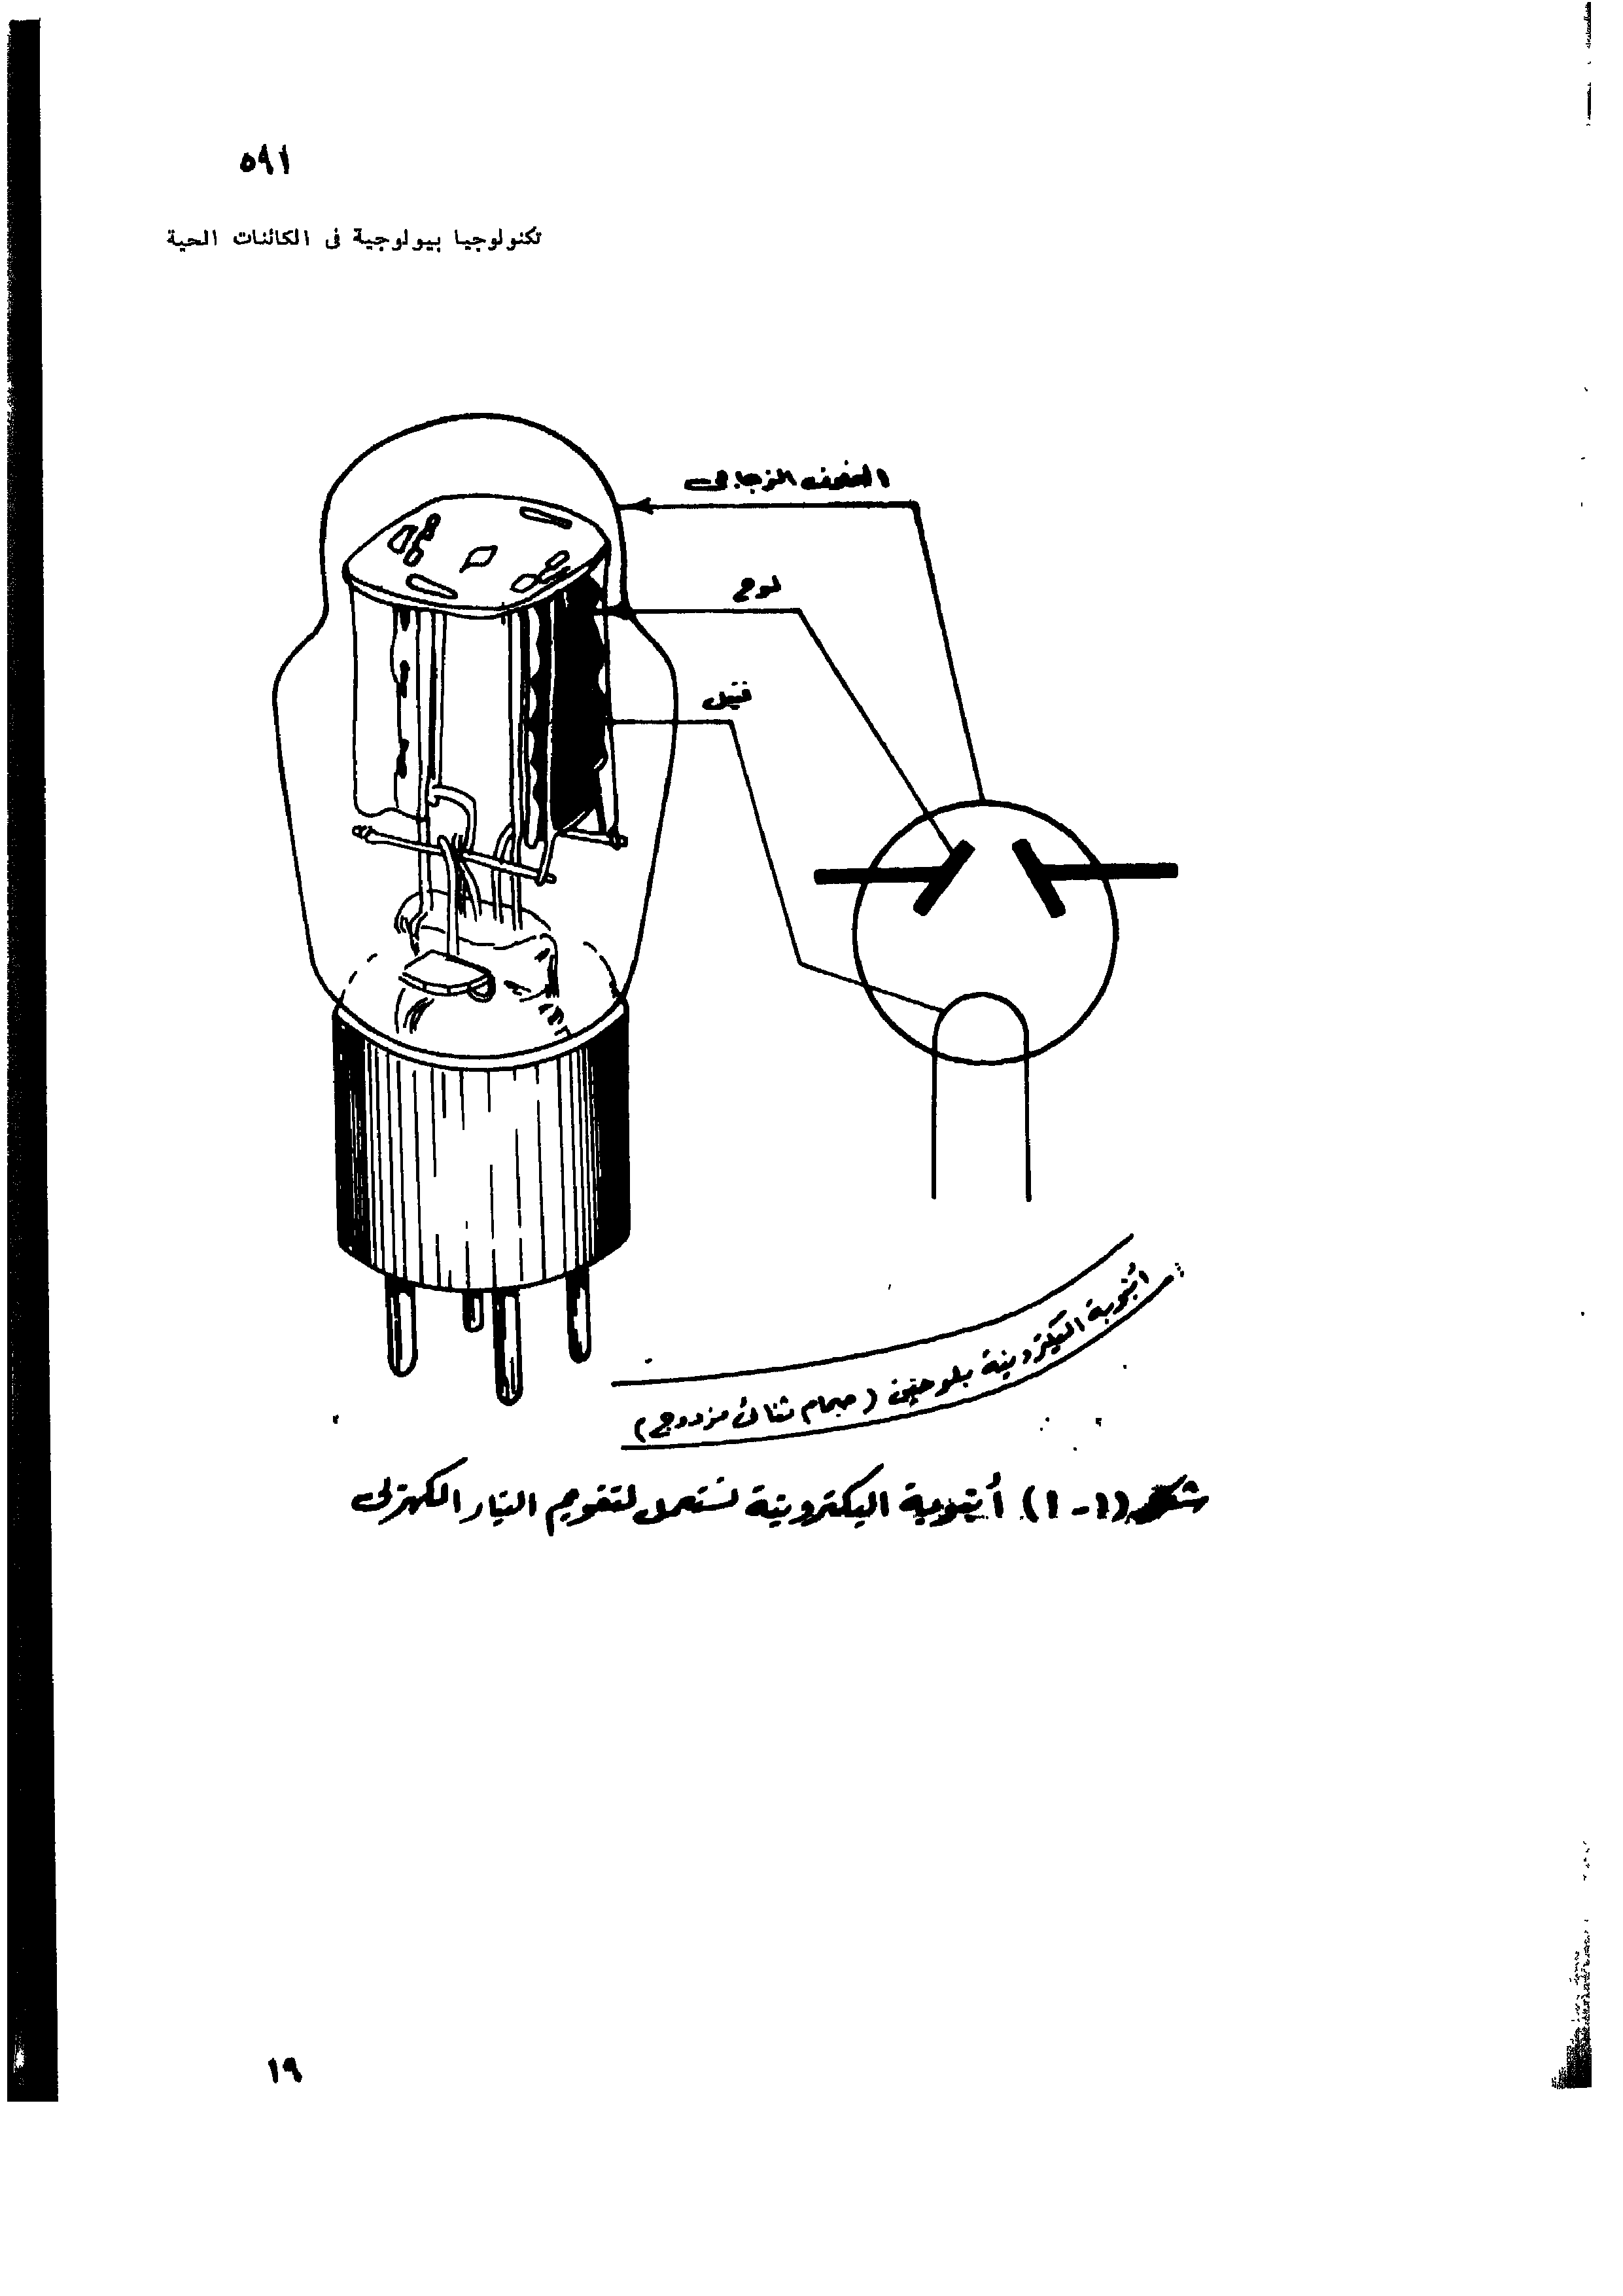 ٥٩١
تكنولوجيا بيولوجية فى الكائنات الحية
الزجاجى
لوح
فتيل
أنبوبة اليكترونية بلوحين (صمام ثنائى مزدوج)
شكل (١-١) أنبوبة اليكترونية تستعمل لتقويم التيار الكهربى
١٩